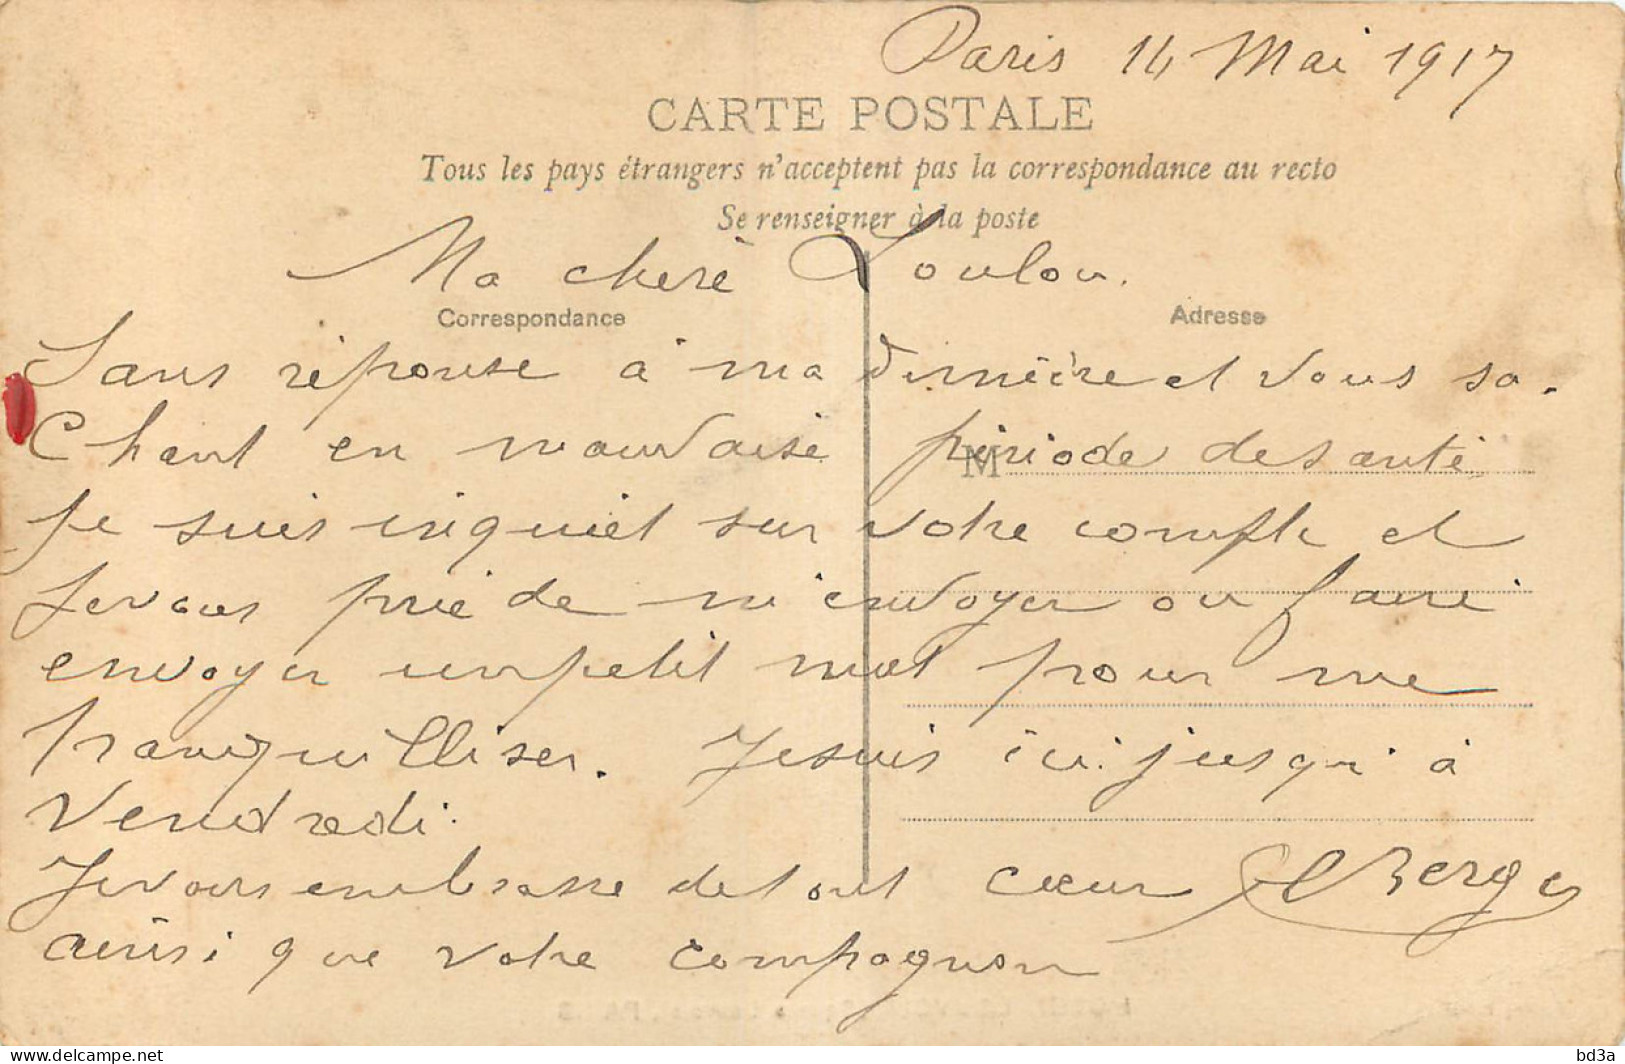 Paris 14 Mai 1917
CARTE POSTALE
Tous les pays étrangers n'acceptent pas la correspondance au recto
Se renseigner à la poste
Ma cherè Loulou.
Correspondance
Adresse
Sans réponse à ma dernière et vous sa-
chant en mauvaise période de santé
M
Je suis inquiet sur votre compte et
Je vous prie de m'envoyer ou faire
envoyer un petit mot pour me
tranquilliser. Je suis ici jusqu'à
Vendredi.
Je vous embrasse de tout cœur
ainsi que votre compagnon
bd3a
https://www.delcampe.net